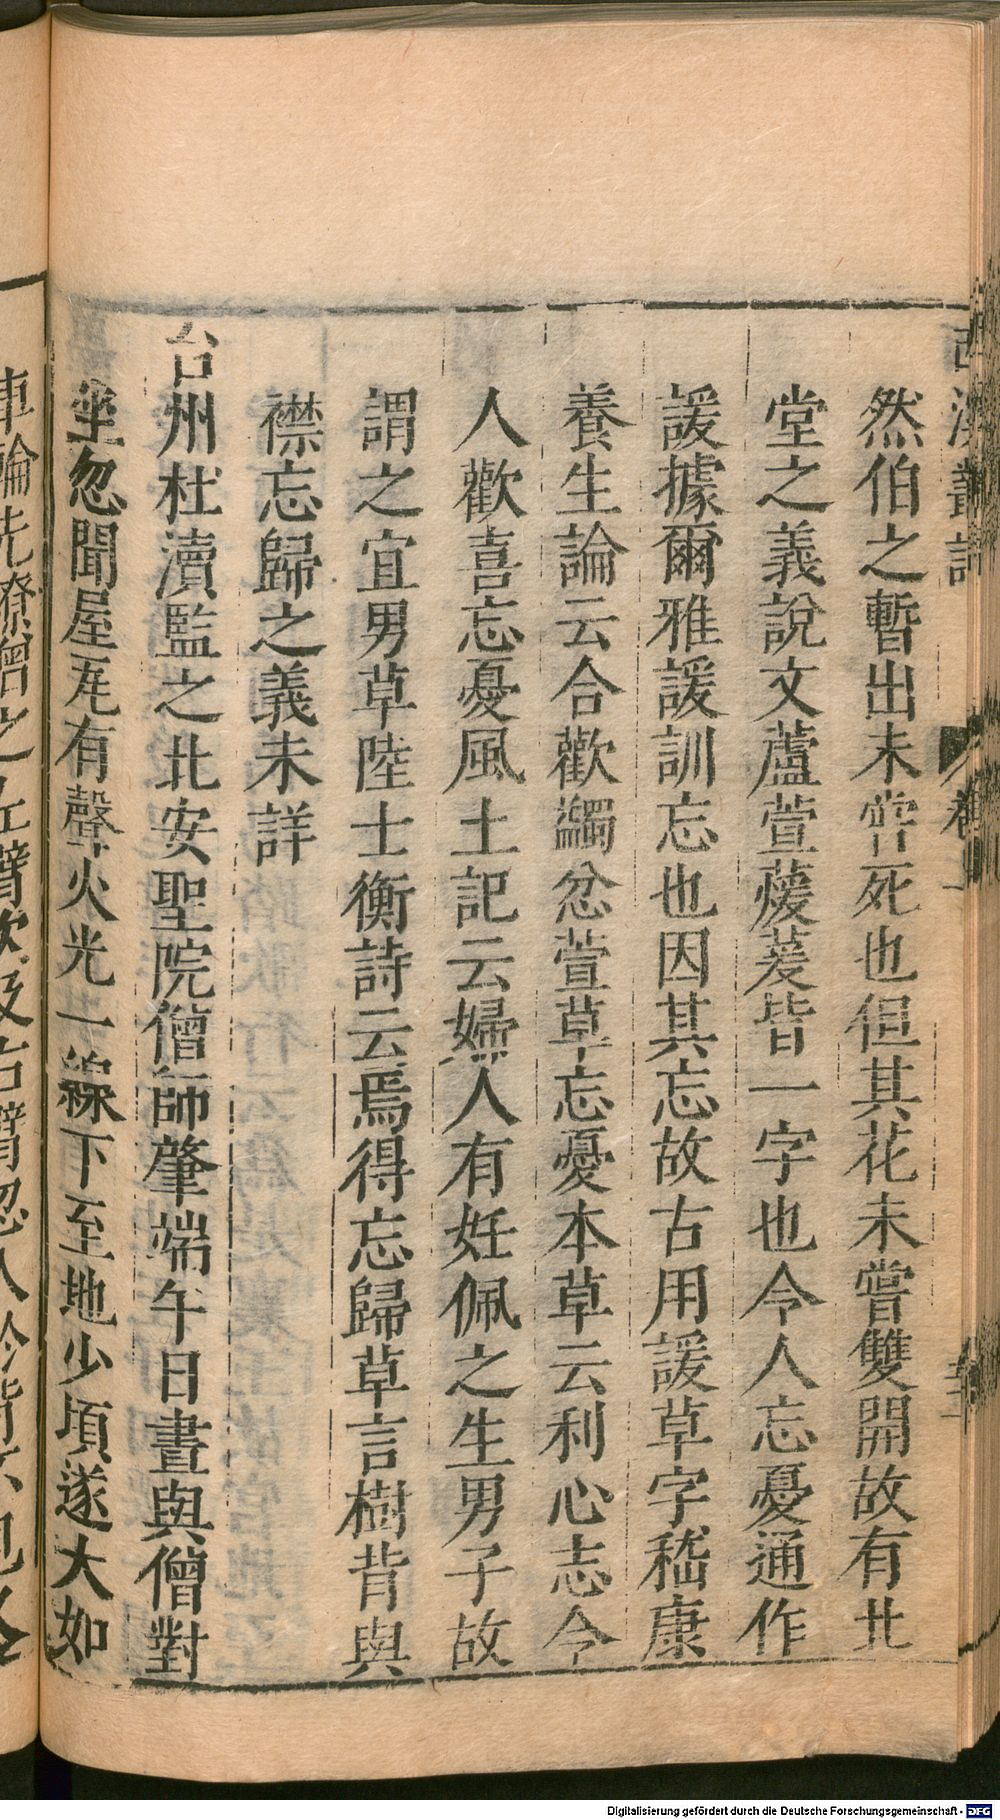 西溪叢語 卷 一
然伯之暫出未嘗死也但其花未嘗雙開故有北
堂之義說文藘萱蕿萲皆一字也令人忘憂通作
諼據爾雅諼訓忘也因其忘故古用諼草字嵇康
養生論云合歡蠲忿萱草忘憂本草云利心志令
人歡喜忘憂風土記云婦人有妊佩之生男子故
謂之宜男草陸士衡詩云焉得忘歸草言樹背與
襟忘歸之義未詳
台州杜瀆監之北安聖院僧師肇端午日晝與僧對
坐忽聞屋瓦有聲火光一線下至地少頃遂大如
車輪先燎僧之左臂次及右臂忽入於背不見
Digitalisierung gefördert durch die Deutsche Forschungsgemeinschaft - DFG